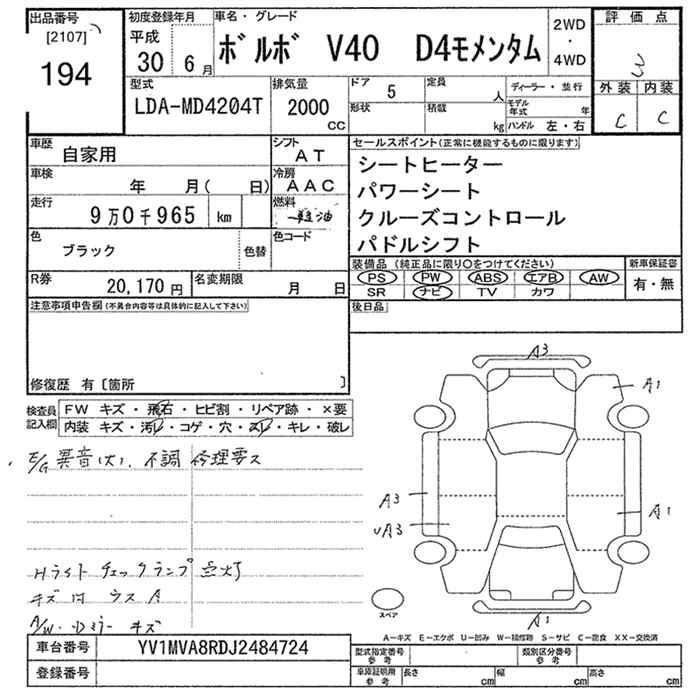 出品番号 [2107] 194
初度登録年月 平成 30年 6月
車名・グレード ボルボ V40 D4モメンタム
2WD ・ 4WD
評価点 3
外装 C 内装 C
型式 LDA-MD4204T
排気量 2000 CC
ドア 5
形状
定員 人
積載 kg
ディーラー・並行
モデル年式 年
ハンドル 左・右
車歴 自家用
シフト AT
車検 年 月( 日)
冷房 AAC
走行 9万0千965 km
燃料 軽油
色 ブラック 色替
色コード
R券 20,170円
名変期限 月 日
セールスポイント(正常に機能するものに限ります)
シートヒーター
パワーシート
クルーズコントロール
パドルシフト
装備品 (純正品に限り○をつけてください)
PS PW ABS エアB AW
SR ナビ TV カワ
新車保証書
有・無
後日品
注意事項申告欄(不具合内容等は具体的に記入して下さい)
修復歴 有 [箇所 ]
検査員記入欄
FW キズ・飛石・ヒビ割・リペア跡・×要
内装 キズ・汚レ・コゲ・穴・スレ・キレ・破レ
E/G 異音(大)、不調 修理要ス
Hライト チェックランプ 点灯
キズ
A/W・Dミラー キズ
A3
A1
A3
UA3
A1
A1
スペア
A−キズ E−エクボ U−凹み W−補修跡 S−サビ C−腐食 XX−交換済
車台番号 YV1MVA8RDJ2484724
登録番号
型式指定番号 参考
類別区分番号 参考
車庫証明用 参考 長さ cm 幅 cm 高さ cm